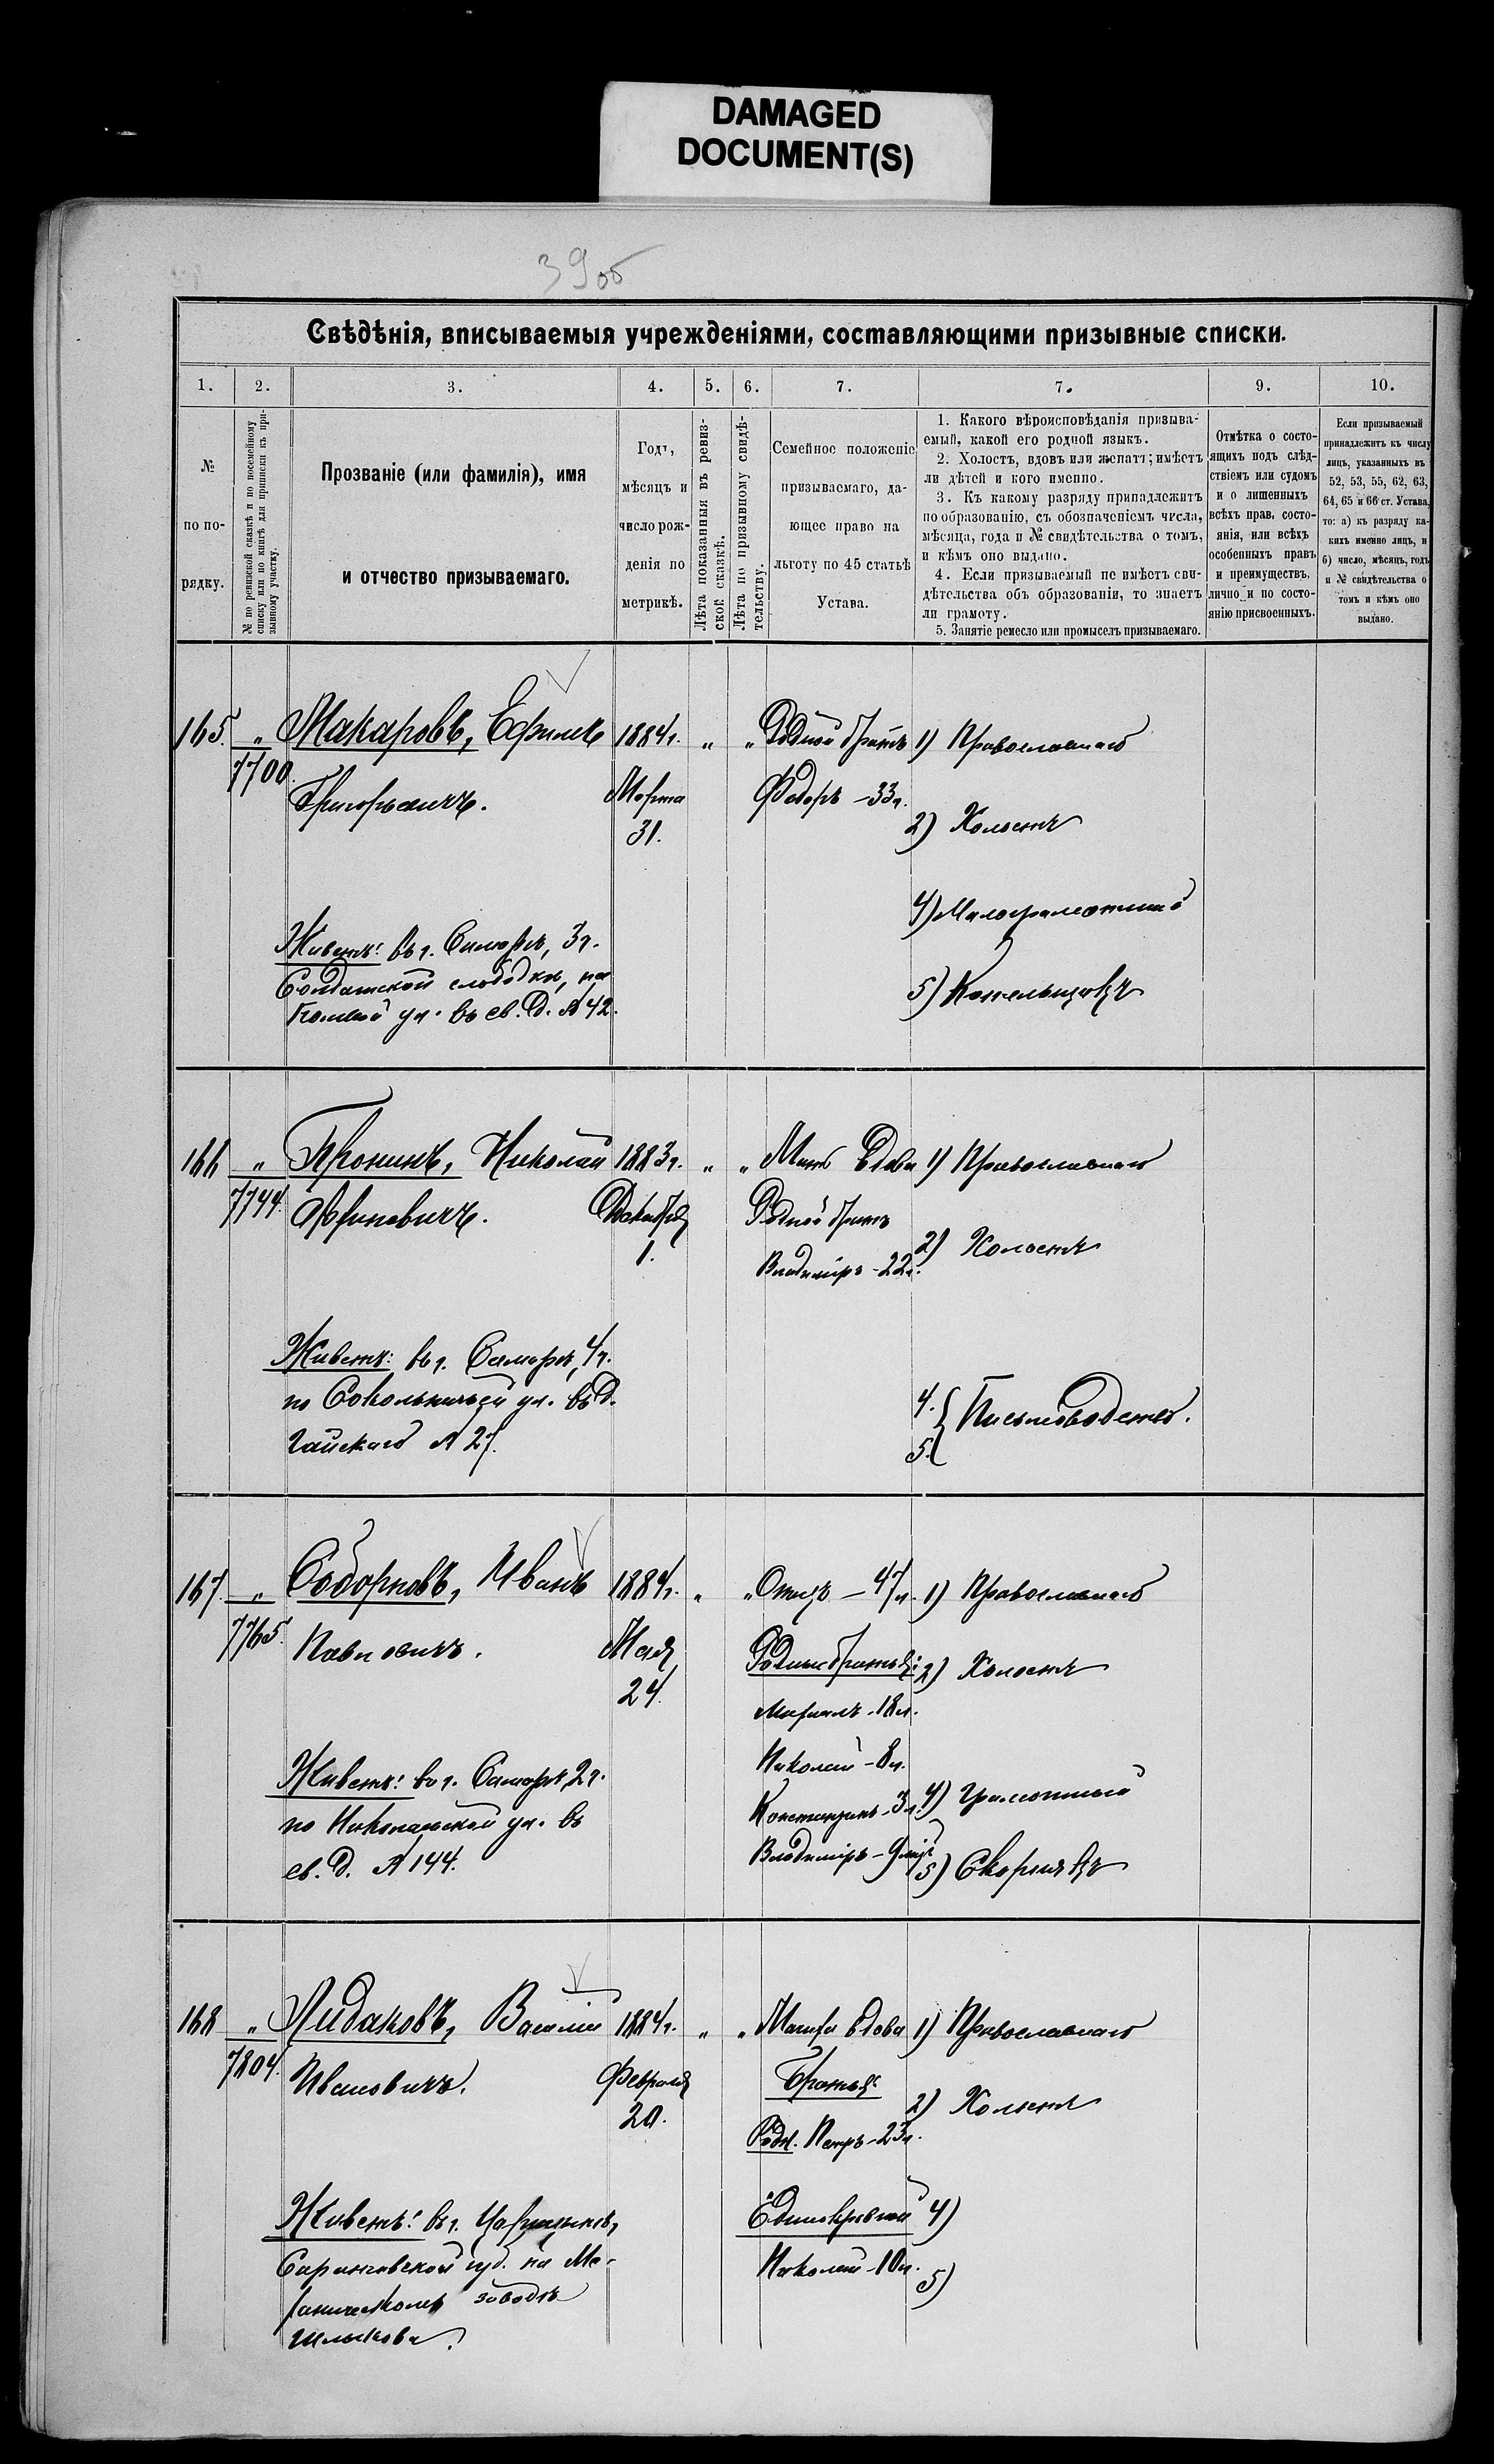 DAMAGED
DOCUMENT(S)
39об
Свѣдѣнія, вписываемыя учрежденіями, составляющими призывные списки.
1. 2. 3. 4. 5. 6. 7. 7. 9. 10.
№
по по-
рядку.
№ по ревизской сказкѣ и по посемейному
списку или по книгѣ для приписки къ при-
зывному участку.
Прозваніе (или фамилія), имя
и отчество призываемаго.
Годъ,
мѣсяцъ и
число рож-
денія по
метрикѣ.
Лѣта показанныя въ ревиз-
ской сказкѣ.
Лѣта по призывному свидѣ-
тельству.
Семейное положеніе
призываемаго, да-
ющее право на
льготу по 45 статьѣ
Устава.
1. Какого вѣроисповѣданія призыва-
емый, какой его родной языкъ.
2. Холостъ, вдовъ или женатъ; имѣетъ
ли дѣтей и кого именно.
3. Къ какому разряду принадлежитъ
по образованію, съ обозначеніемъ числа,
мѣсяца, года и № свидѣтельства о томъ,
и кѣмъ оно выдано.
4. Если призываемый не имѣетъ сви-
дѣтельства объ образованіи, то знаетъ
ли грамоту.
5. Занятіе ремесло или промыселъ призываемаго.
Отмѣтка о состо-
ящихъ подъ слѣд-
ствіемъ или судомъ
и о лишенныхъ
всѣхъ прав. состо-
янія, или всѣхъ
особенныхъ правъ
и преимуществъ,
лично и по состо-
янію присвоенныхъ.
Если призываемый
принадлежитъ къ числу
лицъ, указанныхъ въ
52, 53, 55, 62, 63,
64, 65 и 66 ст. Устава,
то: а) къ разряду ка-
кихъ именно лицъ, и
б) число, мѣсяцъ, годъ
и № свидѣтельства о
томъ и кѣмъ оно
выдано.
165. " 7700.
Макаровъ, Ефимъ
Григорьевичъ.
Живетъ: въ г. Самарѣ, 3 ч.
Солдатской слободки, на
ул. въ св. д. № 42.
1884 г.
Марта
31.
" "
Родной братъ
Федоръ - 33 л.
1) Православнаго
2) Холостъ
4) Малограмотный
5)
166 " 7744.
Пронинъ, Николай
Живетъ: въ г. Самарѣ, 4 ч.
по Сокольничьей ул. въ д.
№ 27.
1883 г.
Декабря
1.
" "
Мать вдова
Родной братъ
Владиміръ - 22 л.
1) Православнаго
2) Холостъ
4.
5. Письмоводство.
167. " 7765.
Соборновъ, Иванъ
Павловичъ.
Живетъ: въ г. Самарѣ, 2 ч.
по Николаевской ул. въ
св. д. № 144.
1884 г.
Мая
24.
" "
Отецъ - 47 л.
Родные братья:
Михаилъ - 18 л.
Николай - 8 л.
Константинъ - 3 л.
Владиміръ - 9 мѣс.
1) Православнаго
2) Холостъ
4) Грамотный
5) Скорнякъ
168 " 7804.
Лидаковъ, Василій
Ивановичъ.
Живетъ: въ г. Царицынѣ,
Саратовской губ. на Ме-
ханическомъ заводѣ
Шлыкова.
1884 г.
Февраля
20.
" "
Мачиха вдова
Братья:
Родн. Петръ - 23 л.
Единокровный
Николай - 10 л.
1) Православнаго
2) Холостъ
4)
5)